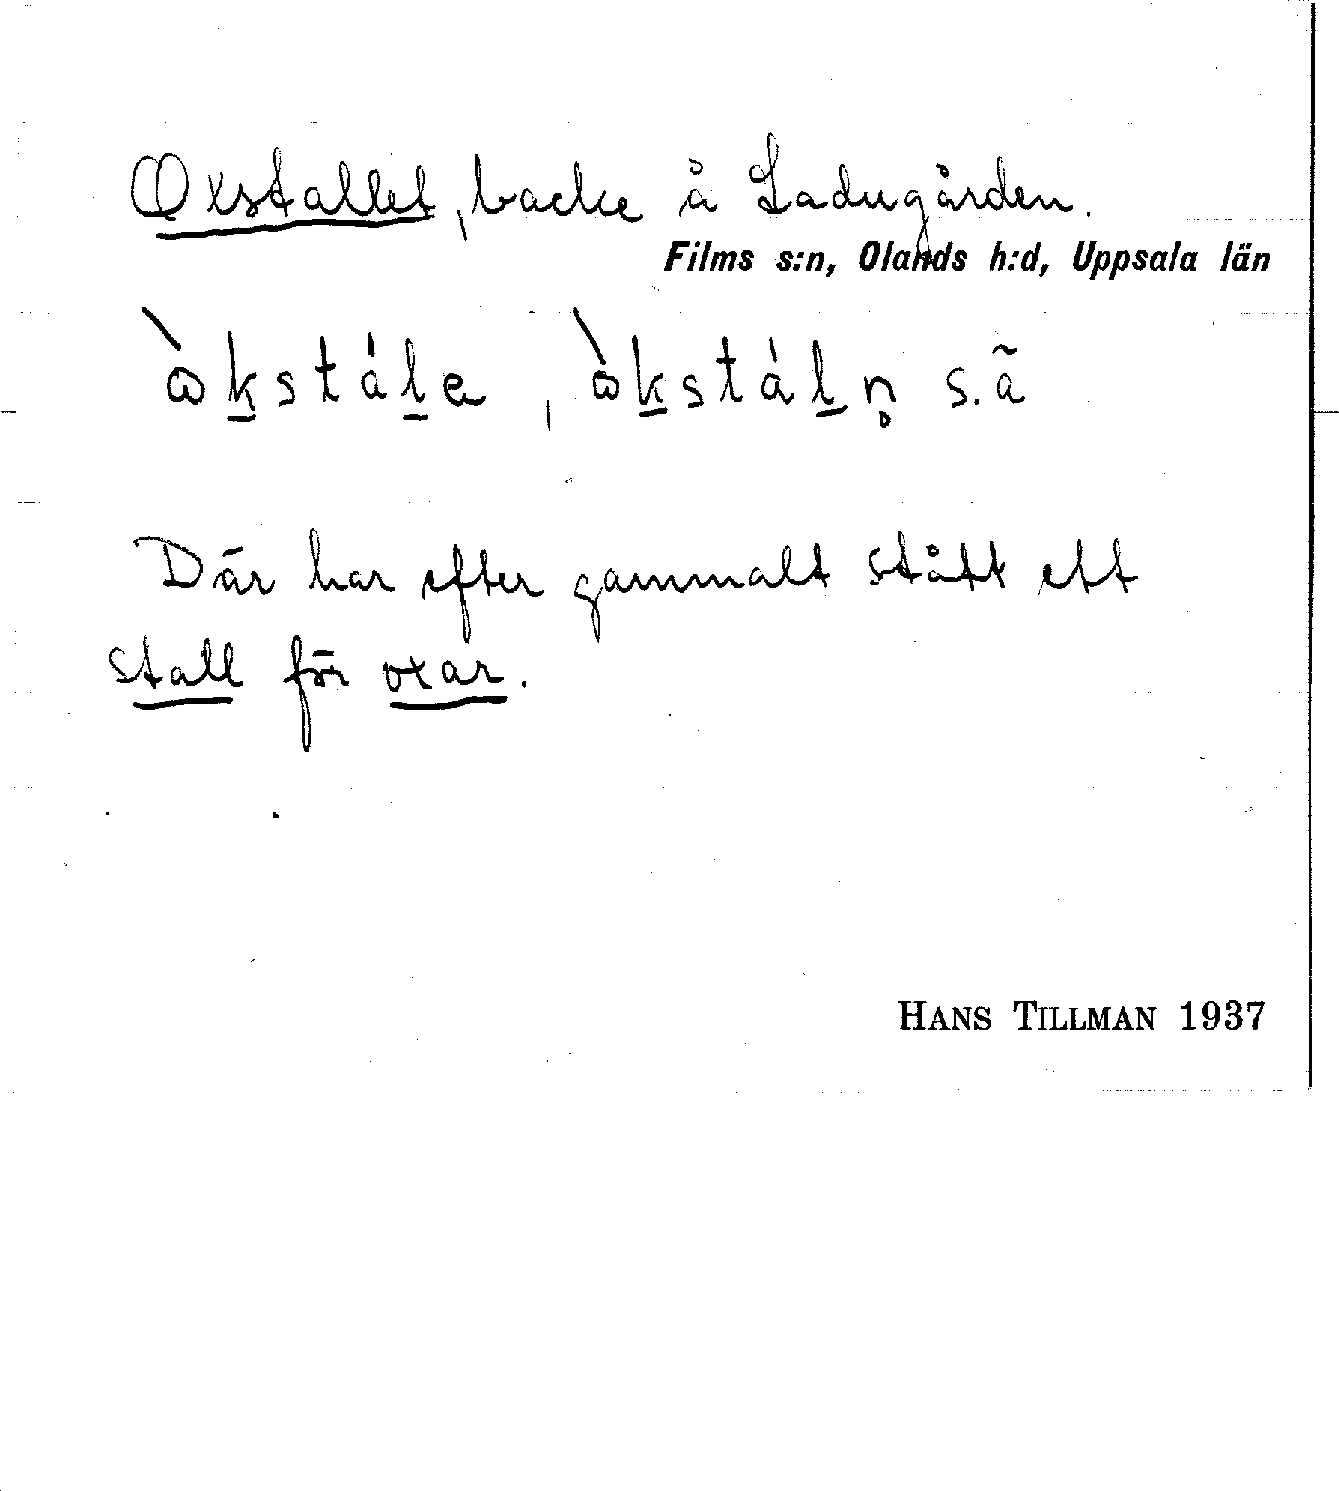 Oxstallet, backe å Ladugården.
Films s:n, Olands h:d, Uppsala län
ὼkstála, ὼkstáln̥ s.ã
Där har efter gammalt stått ett
stall för oxar.
HANS TILLMAN 1937